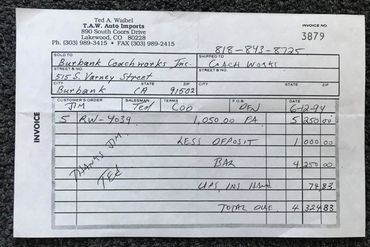 Ted A. Waibel
T.A.W. Auto Imports
890 South Coors Drive
Lakewood, CO 80228
Ph (303) 989-3415 • FAX (303) 989-2415
INVOICE NO.
3879
818-843-8725
SOLD TO
Burbank Coachworks Inc.
SHIPPED TO
Coach Works
STREET & NO.
515 S. Varney Street
STREET & NO.
CITY STATE ZIP
Burbank CA 91502
CITY STATE ZIP
CUSTOMER'S ORDER SALESMAN TERMS F.O.B. DATE
Jim Ted COD Den 6-12-94
5 RW-4039 1,050.00 EA 5 250 00
LESS DEPOSIT 1 000 00
BAL 4 250 00
THANKS JIM
TED
UPS, INS 74 83
TOTAL DUE 4 324 83
INVOICE